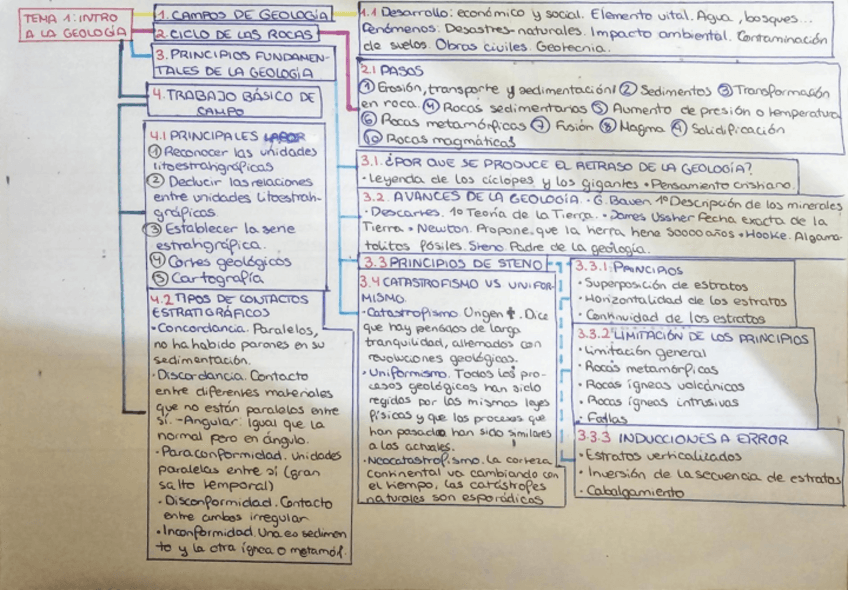 TEMA 1: INTRO
A LA GEOLOGÍA
1. CAMPOS DE GEOLOGÍA
2. CICLO DE LAS ROCAS
3. PRINCIPIOS FUNDAMEN-
TALES DE LA GEOLOGÍA
4. TRABAJO BÁSICO DE
CAMPO
1.1 Desarrollo: económico y social. Elemento vital. Agua, bosques...
Fenómenos: Desastres naturales. Impacto ambiental. Contaminación
de suelos. Obras civiles. Geotecnia.
2.1 PASOS
① Erosión, transporte y sedimentación ② Sedimentos ③ Transformación
en roca. ④ Rocas sedimentarias ⑤ Aumento de presión o temperatura
⑥ Rocas metamórficas ⑦ Fusión ⑧ Magma ⑨ Solidificación
⑩ Rocas magmáticas
3.1. ¿POR QUE SE PRODUCE EL RETRASO DE LA GEOLOGÍA?
· Leyenda de los cíclopes y los gigantes · Pensamiento cristiano.
3.2. AVANCES DE LA GEOLOGÍA · G. Bauer. 1º Descripción de los minerales
· Descartes. 1º Teoría de la Tierra. · James Ussher Fecha exacta de la
Tierra · Newton. Propone, que la tierra tiene 50000 años · Hooke. Algama-
tolitos fósiles. Steno Padre de la geología.
3.3 PRINCIPIOS DE STENO
3.3.1. PRINCIPIOS
· Superposición de estratos
· Horizontalidad de los estratos
· Continuidad de los estratos
3.3.2 LIMITACIÓN DE LOS PRINCIPIOS
· Limitación general
· Rocas metamórficas
· Rocas ígneas volcánicas
· Rocas ígneas intrusivas
· Fallas
3.3.3 INDUCCIONES A ERROR
· Estratos verticalizados
· Inversión de la secuencia de estratos
· Cabalgamiento
3.4 CATASTROFISMO VS UNIFOR-
MISMO
· Catastrofismo. Origen ✝. Dice
que hay periodos de larga
tranquilidad, alternados con
revoluciones geológicas.
· Uniformismo. Todos los pro-
cesos geológicos han sido
regidos por las mismas leyes
físicas y que los procesos que
han pasado han sido similares
a los actuales.
· Neocatastrofismo. La corteza
continental va cambiando con
el tiempo, las catástrofes
naturales son esporádicos
4.1 PRINCIPALES LABOR
① Reconocer las unidades
litoestrahgráficas
② Deducir las relaciones
entre unidades litoestrah-
gráficas
③ Establecer la serie
estrahgráfica.
④ Cortes geológicos
⑤ Cartografía
4.2 TIPOS DE CONTACTOS
ESTRATIGRÁFICOS
· Concordancia. Paralelos,
no ha habido parones en su
sedimentación.
· Discordancia. Contacto
entre diferentes materiales
que no están paralelos entre
sí. - Angular: Igual que la
normal pero en ángulo.
· Paraconformidad. Unidades
paralelas entre sí (gran
salto temporal)
· Disconformidad. Contacto
entre ambos irregular
· Inconformidad. Una es sedimen
to y la otra ígnea o metamórf.